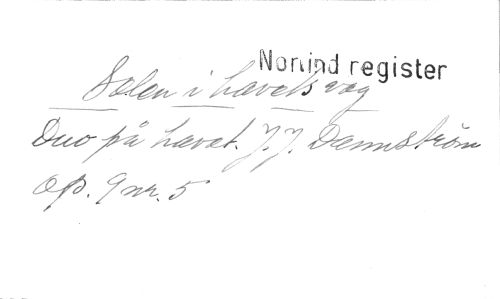 Norrind register
Solen i havets våg
Duo på havet. J. J. Dannström
Op. 9 nr. 5